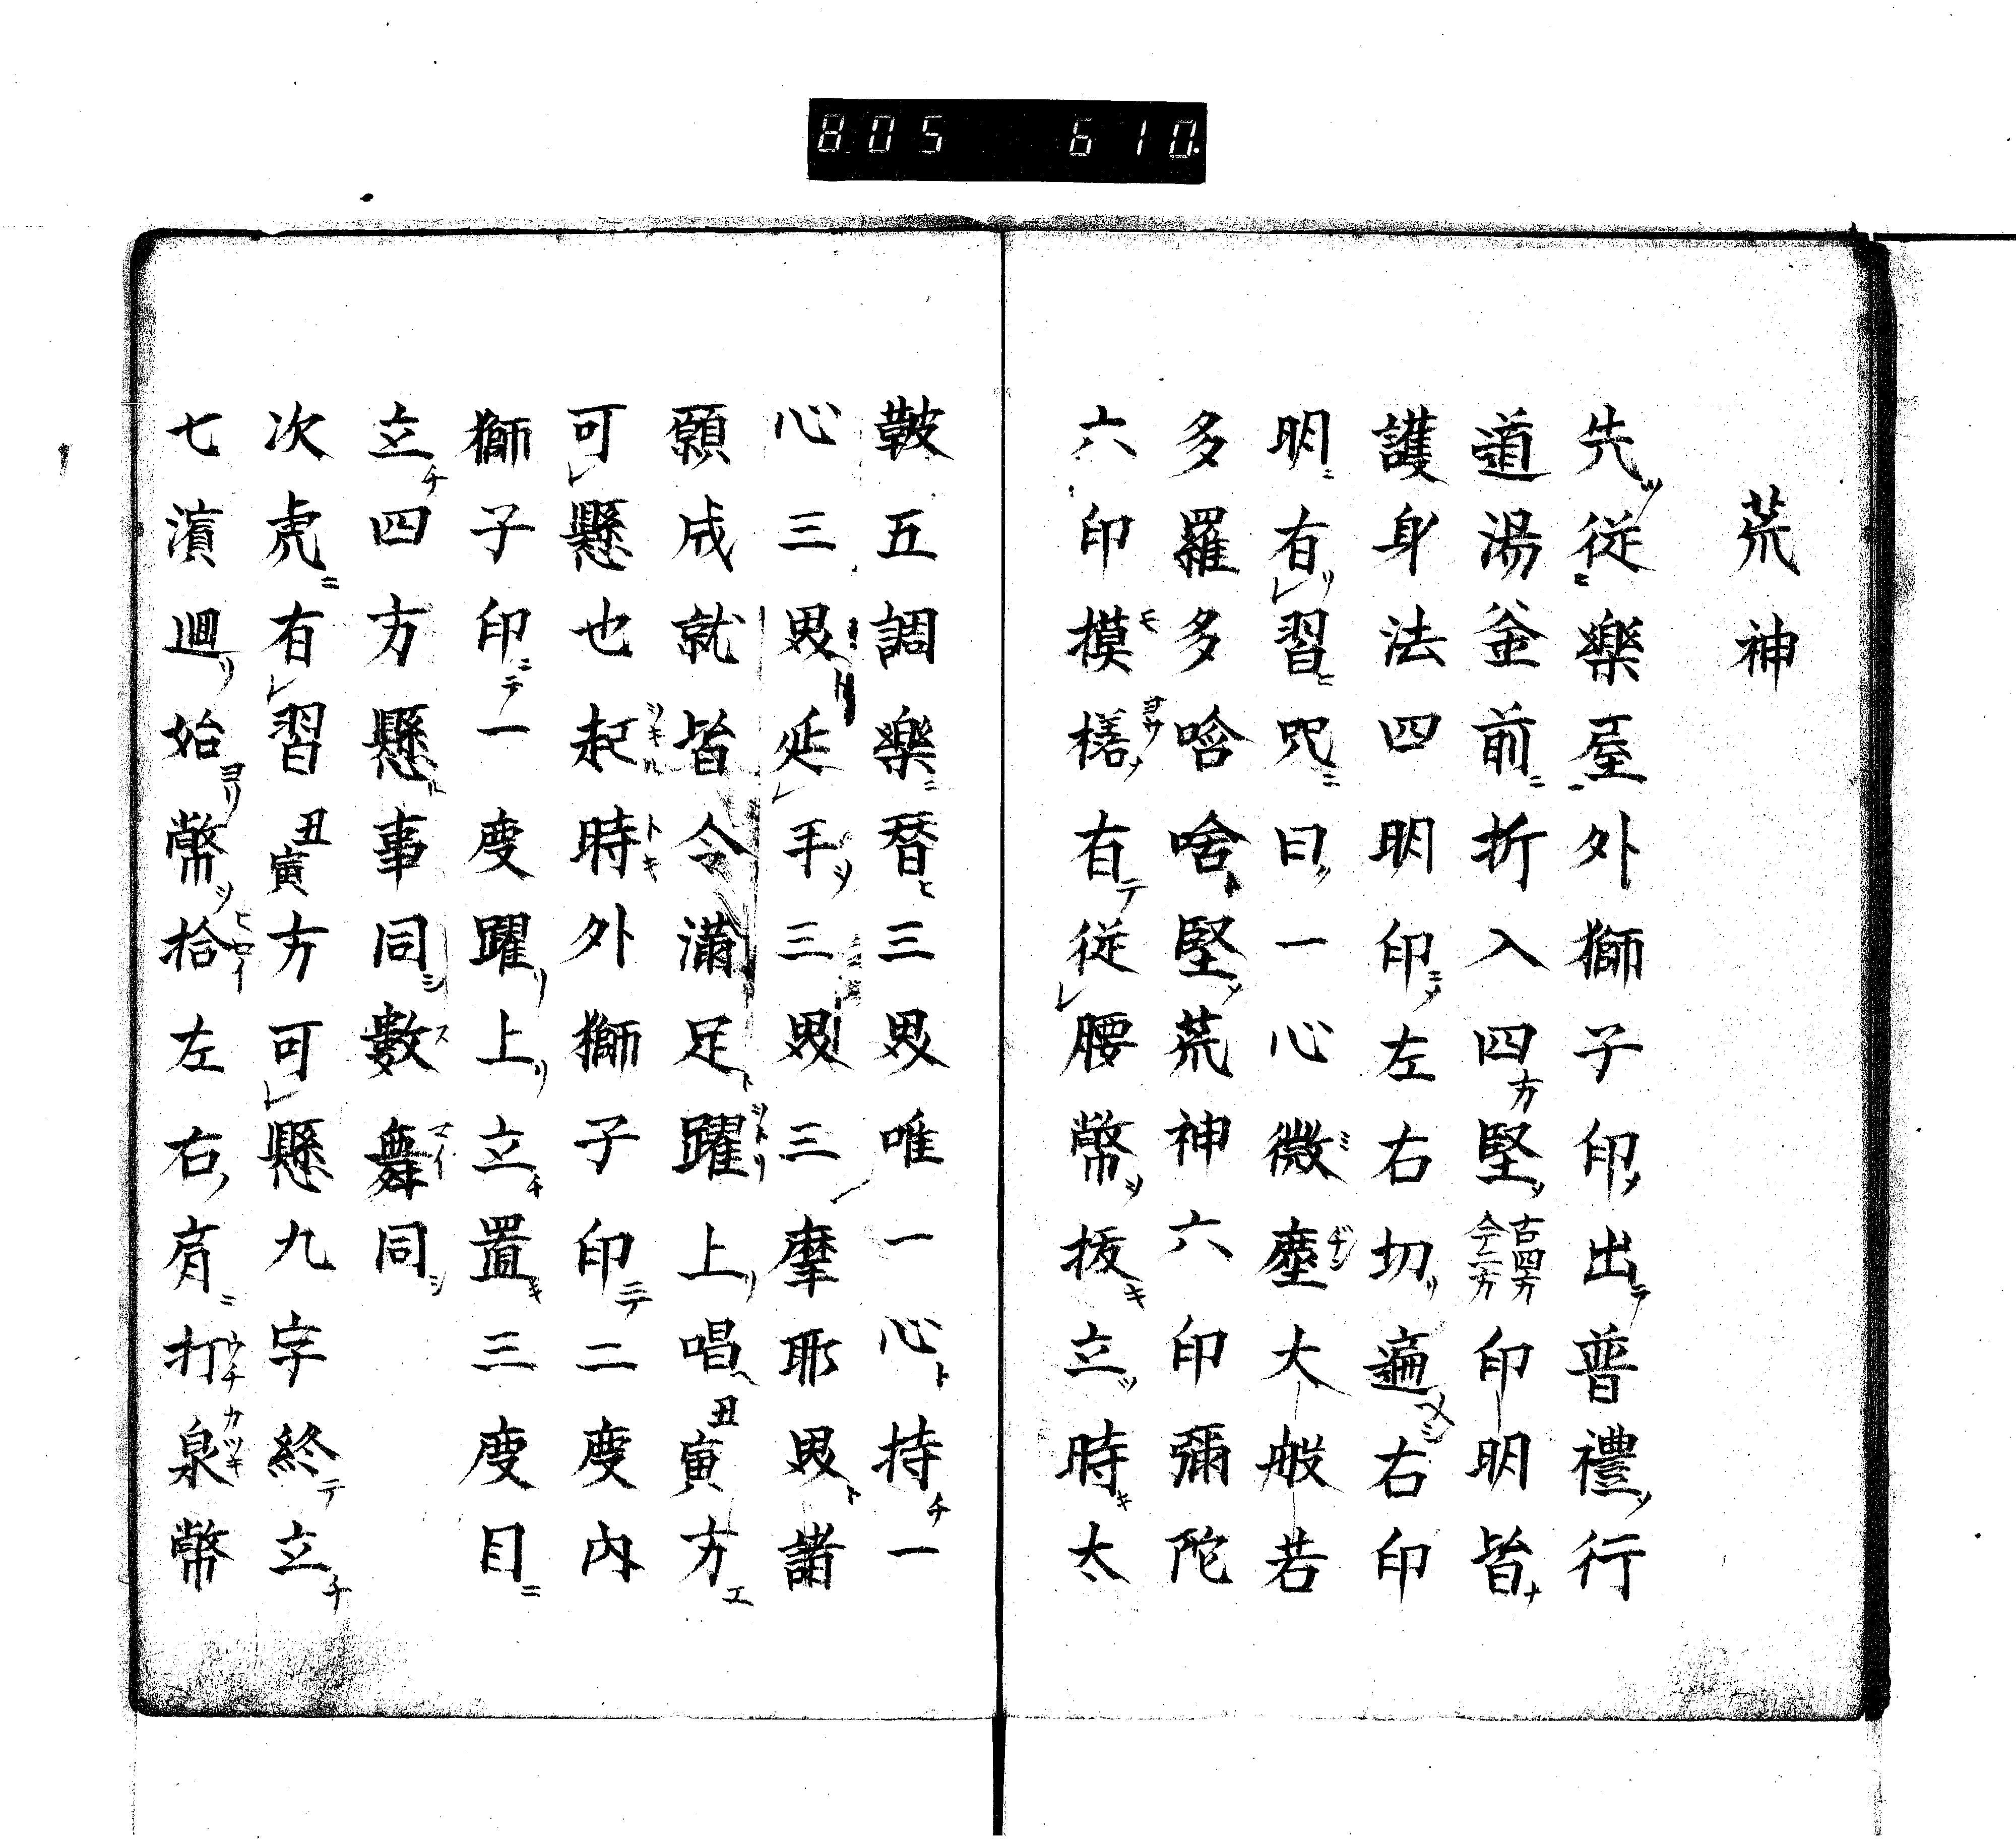 805 610.
荒神
先ツ従ニ楽屋外獅子印ノ出テ普禮ツ行
道湯釜前ニ折入四方堅ツ古四方今十二方印明皆ナ
護身法四明印ミノ左右切ツ遍右印
明ニ有レ習ヒ咒ニ曰ク一心微塵大般若
多羅多唅啥ト堅ノ荒神六印彌陀
六印模様ノ有テ従レ腰幣ツ抜キ立ツ時キ太
鼓五調楽ニ替ヒ三毘唯一心ト持チ一
心三毘ト延レ手ツ三毘三摩耶毘ト諸
願成就皆令滿足ト躍上リ唱ヘ丑寅方エ
可レ懸也起時外獅子印ニテ二度内
獅子印ニテ一度躍リ上リ立チ置キ三度目ニ
立チ四方懸ル事同シ數舞同シ
次虎ニ有レ習丑寅方可レ懸九字終テ立チ
七濱廻リ始ヨリ幣ツ拾左右ノ肩ニ打泉幣